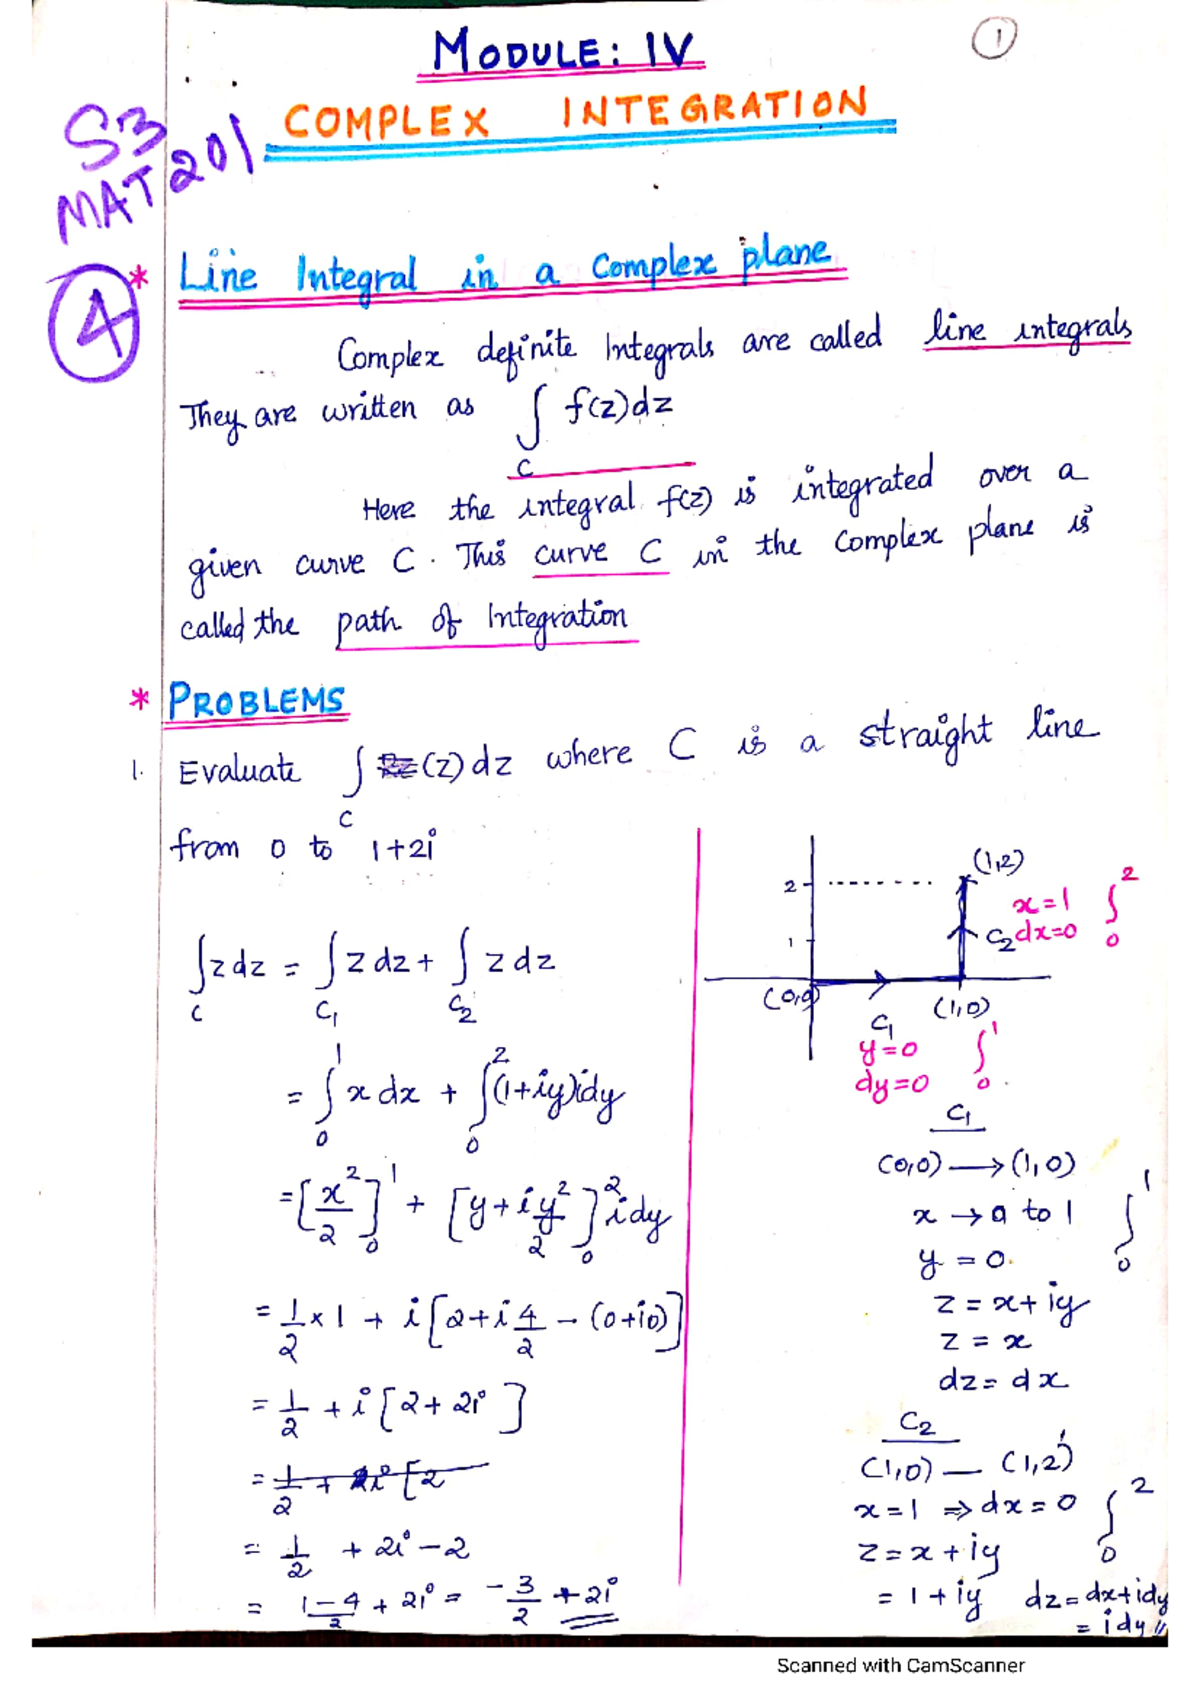 MODULE: IV
1
COMPLEX INTEGRATION
S3
MAT201
4
* Line Integral in a Complex plane
Complex definite Integrals are called line integrals
They are written as ∫_C f(z)dz
Here the integral f(z) is integrated over a
given curve C. This curve C in the complex plane is
called the path of Integration
* PROBLEMS
1. Evaluate ∫_C (z) dz where C is a straight line
from 0 to 1+2i
∫_C z dz = ∫_C₁ z dz + ∫_C₂ z dz
= ∫_0^1 x dx + ∫_0^2 (1+iy)idy
= [x²/2]_0^1 + [y+iy²/2]_0^2 idy
= 1/2 × 1 + i[2+i 4/2 - (0+i0)]
= 1/2 + i[2+2i]
= 1/2 + 2i[2
= 1/2 + 2i - 2
= 1-4/2 + 2i = -3/2 + 2i
2
1
(1,2)
x=1 ∫_0^2
C₂ dx=0
(0,0)
(1,0)
C₁
y=0 ∫_0^1
dy=0
C₁
(0,0) → (1,0)
x → 0 to 1 ∫_0^1
y = 0.
z = x+iy
z = x
dz = dx
C₂
(1,0) — (1,2)
x=1 ⇒ dx=0 ∫_0^2
z = x+iy
= 1+iy dz = dx+idy
= idy //
Scanned with CamScanner